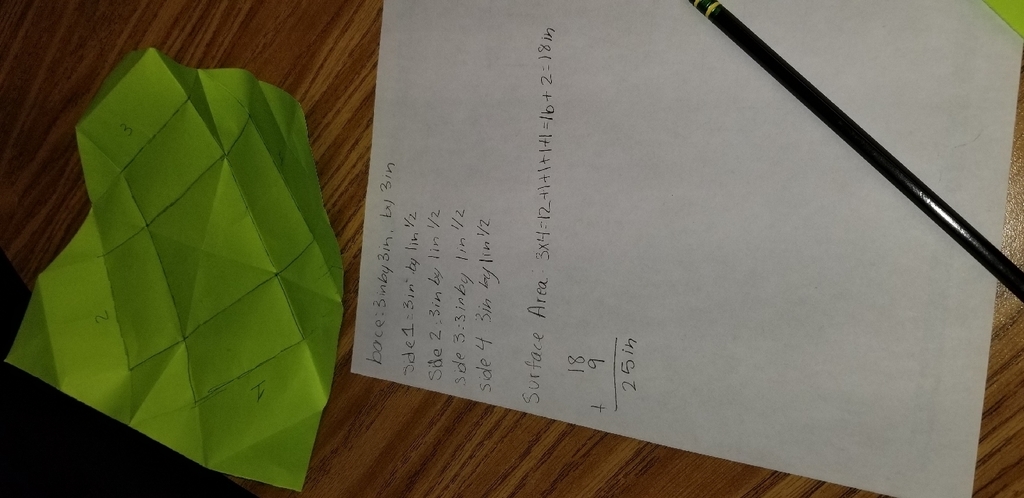 base: 3in by 3in, by 3in
side 1: 3in by 1in 1/2
side 2: 3in by 1in 1/2
side 3: 3in by 1in 1/2
side 4 3in by 1in 1/2
Surface Area: 3x4=12+1+1+1+1=16+2=18in
18
+ 9
25in
3
2
4